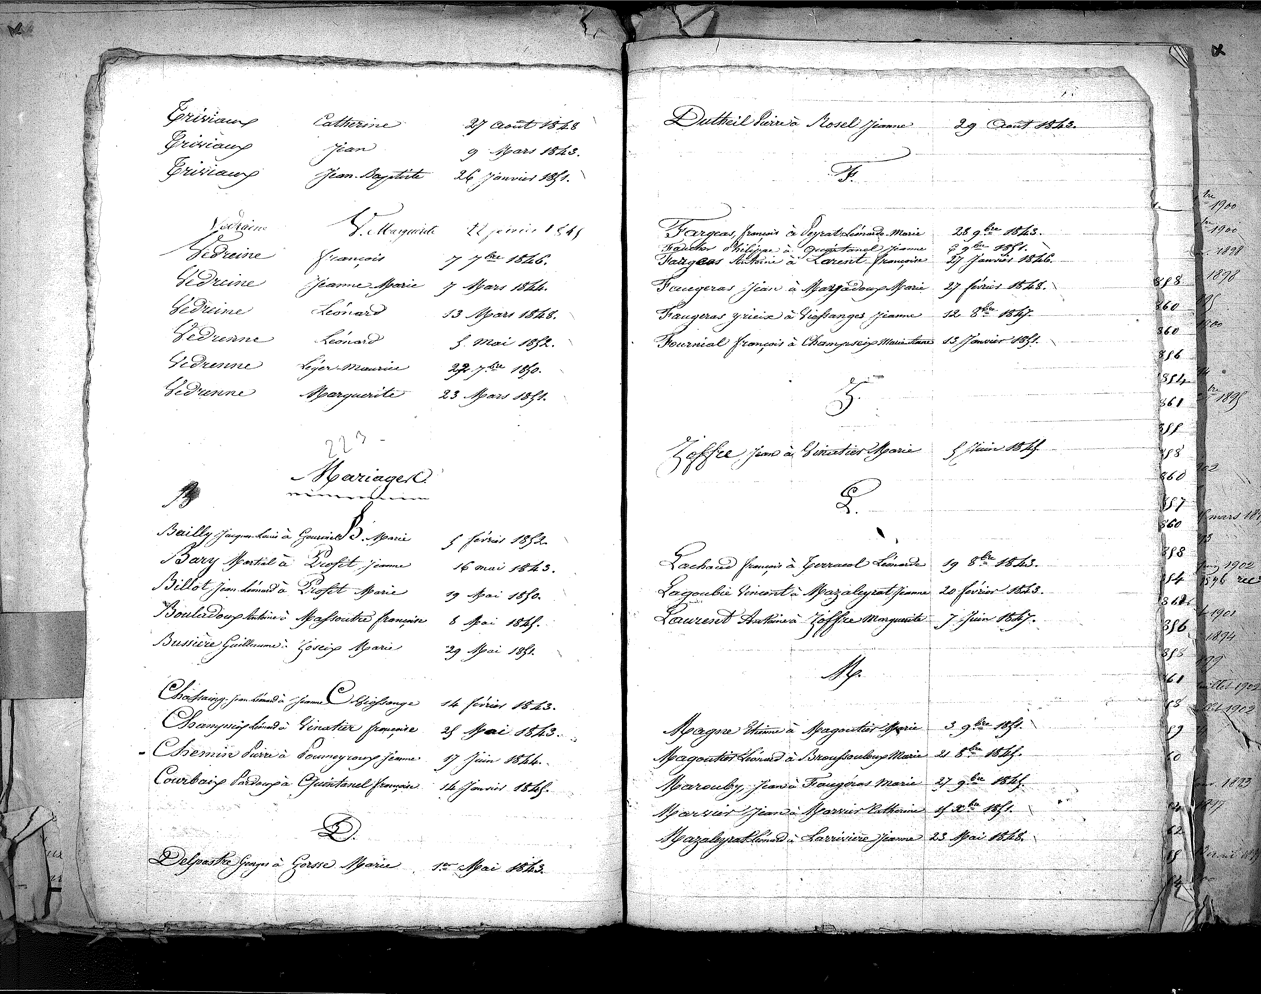 Triviaux Catherine 27 Août 1843
Triviaux Jean 9 Mars 1843.
Triviaux Jean-Baptiste 26 Janvier 1851.
V.
Vedrine Marguerite 22
Vedreine françois 7 7bre 1846.
Vedreine Jeanne Marie 7 Mars 1844.
Vedreine Léonard 13 Mars 1848.
Vedrenne Léonard 5 Mai 1852.
Vedrenne Léger Maurice 22 7bre 1850.
Vedrenne Marguerite 23 Mars 1851.
223
Mariages.
B
B.
Bailly Jacques Louis à Marie 5 février 1852.
Bary Martial à Profit Jeanne 16 mai 1843.
Billot Jean Léonard à Profit Marie 19 Mai 1850.
Bouladoux Antoine à Massoutre françoise 8 Mai 1845.
Bussière Guillaume à Marie 29 Mai 1851.
C
Chassaing Jean Léonard à Jeanne 14 février 1843.
Champseix Léonard à Vinatier françoise 25 Mai 1843.
Chemin Pierre à Poumeyroux Jeanne 17 Juin 1844.
Courbaix Pardoux à Quintanel françoise 14 Janvier 1845.
D.
Delpastre Georges à Gorsse Marie 1er Mai 1843.
Dutheil Pierre à Rosel Jeanne 29 Août 1843.
F.
Fargeas, françois à Peyrat Léonarde Marie 28 9bre 1843.
Faucher Philippe à Quintanel Jeanne 6 9bre 1851.
Fargeas Antoine à Laurent françoise 27 Janvier 1846.
Faugeras Jean à Margadoux Marie 27 février 1848.
Faugeras yrieix à Viossanges Jeanne 12 8bre 1847.
Fournial françois à Champseix Marie Anne 13 Janvier 1851.
J.
Joffre Jean à Vinatier Marie 5 Juin 1845
L.
Lachaud françois à Terracol Léonarde 19 8bre 1843.
Lagoubie Vincent à Mazaleyrat Jeanne 20 février 1843.
Laurent Antoine à Joffre Marguerite 7 Juin 1847.
M.
Magne Etienne à Magoutier Marie 3 9bre 1851.
Magoutier Léonard à Broussouloux Marie 21 8bre 1845.
Marouby, Jean à Faugéras Marie 27 9bre 1845.
Marsier Jean à Marsier Catherine 15 Xbre 1851.
Mazaleyrat Léonard à Larrivière Jeanne 23 Mai 1848.